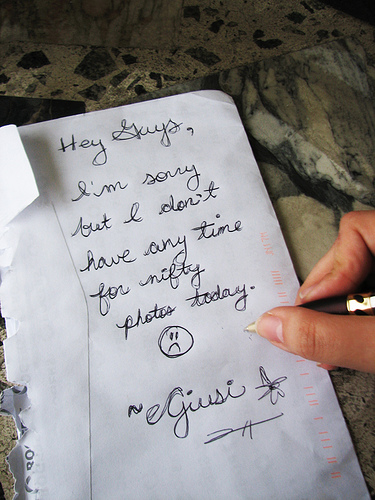 Hey Guys,
I'm sorry
but I don't
have any time
for nifty
photos today.
~Giusi